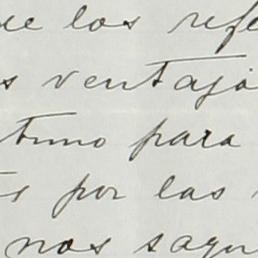 ue los refe
s ventaja
timo para
s por las
nos saqu